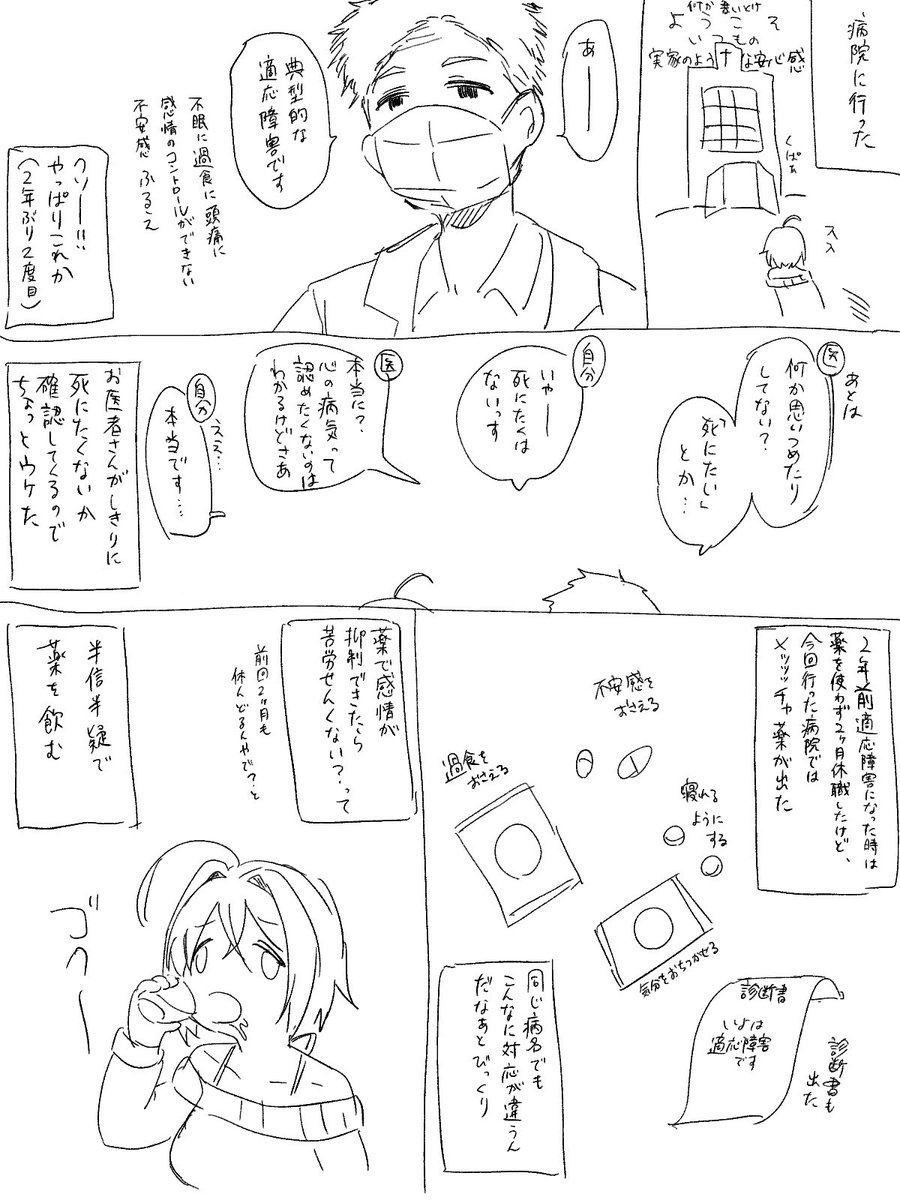 病院に行った
何か書いとけ
ようこそ
いつもの
実家のような安心感
くぱぁ
スス
あーー
典型的な
適応障害です
不眠に過食に頭痛に
感情のコントロールができない
不安感 ふるえ
クソー!!!
やっぱりこれか
(2年ぶり2度目)
あとは
医
何か思いつめたり
してない?
「死にたい」
とか…
自分
いやーー
死にたくは
ないっす
医
本当に?
心の病気って
認めたくないのは
わかるけどさあ
自分
ええ…
本当です…
お医者さんがしきりに
死にたくないか
確認してくるので
ちょっとウケた
2年前適応障害になった時は
薬を使わず2ヶ月休職したけど、
今回行った病院では
メッッッチャ薬が出た
不安感を
おさえる
過食を
おさえる
寝れる
ように
する
気分をおちつかせる
診断書
いよは
適応障害
です
診断書も
出た
同じ病名でも
こんなに対応が違うん
だなあとびっくり
薬で感情が
抑制できたら
苦労せんくない?って
前回2ヶ月も
休んどるんやで?と
半信半疑で
薬を飲む
ゴクー